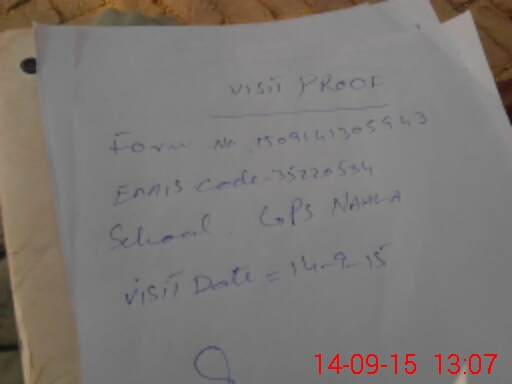 VISIT PROOF
Form No. 1509141305943
EMIS code. 35220534
School. GPS
VISIT Date = 14-9-15
14-09-15 13:07